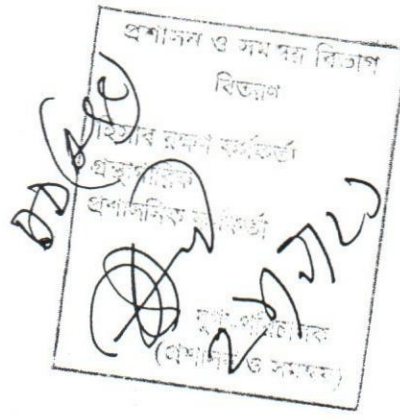 প্রশাসন ও সমন্বয় বিভাগ
বিতরণ
হিসাব রক্ষণ কর্মকর্তা
গ্রন্থাগারিক
প্রশাসনিক কর্মকর্তা
যুগ্ম-পরিচালক
(প্রশাসন ও সমন্বয়)